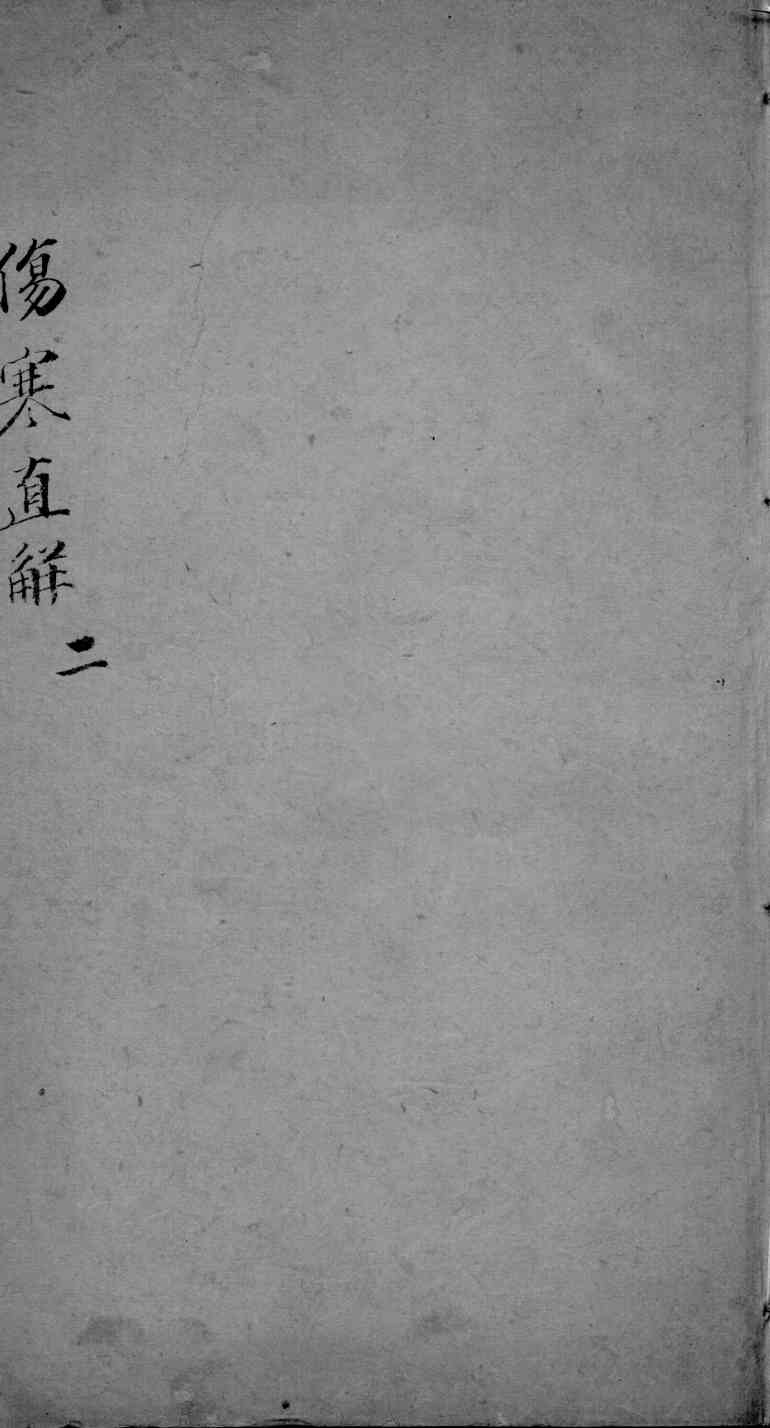 傷寒直觧二